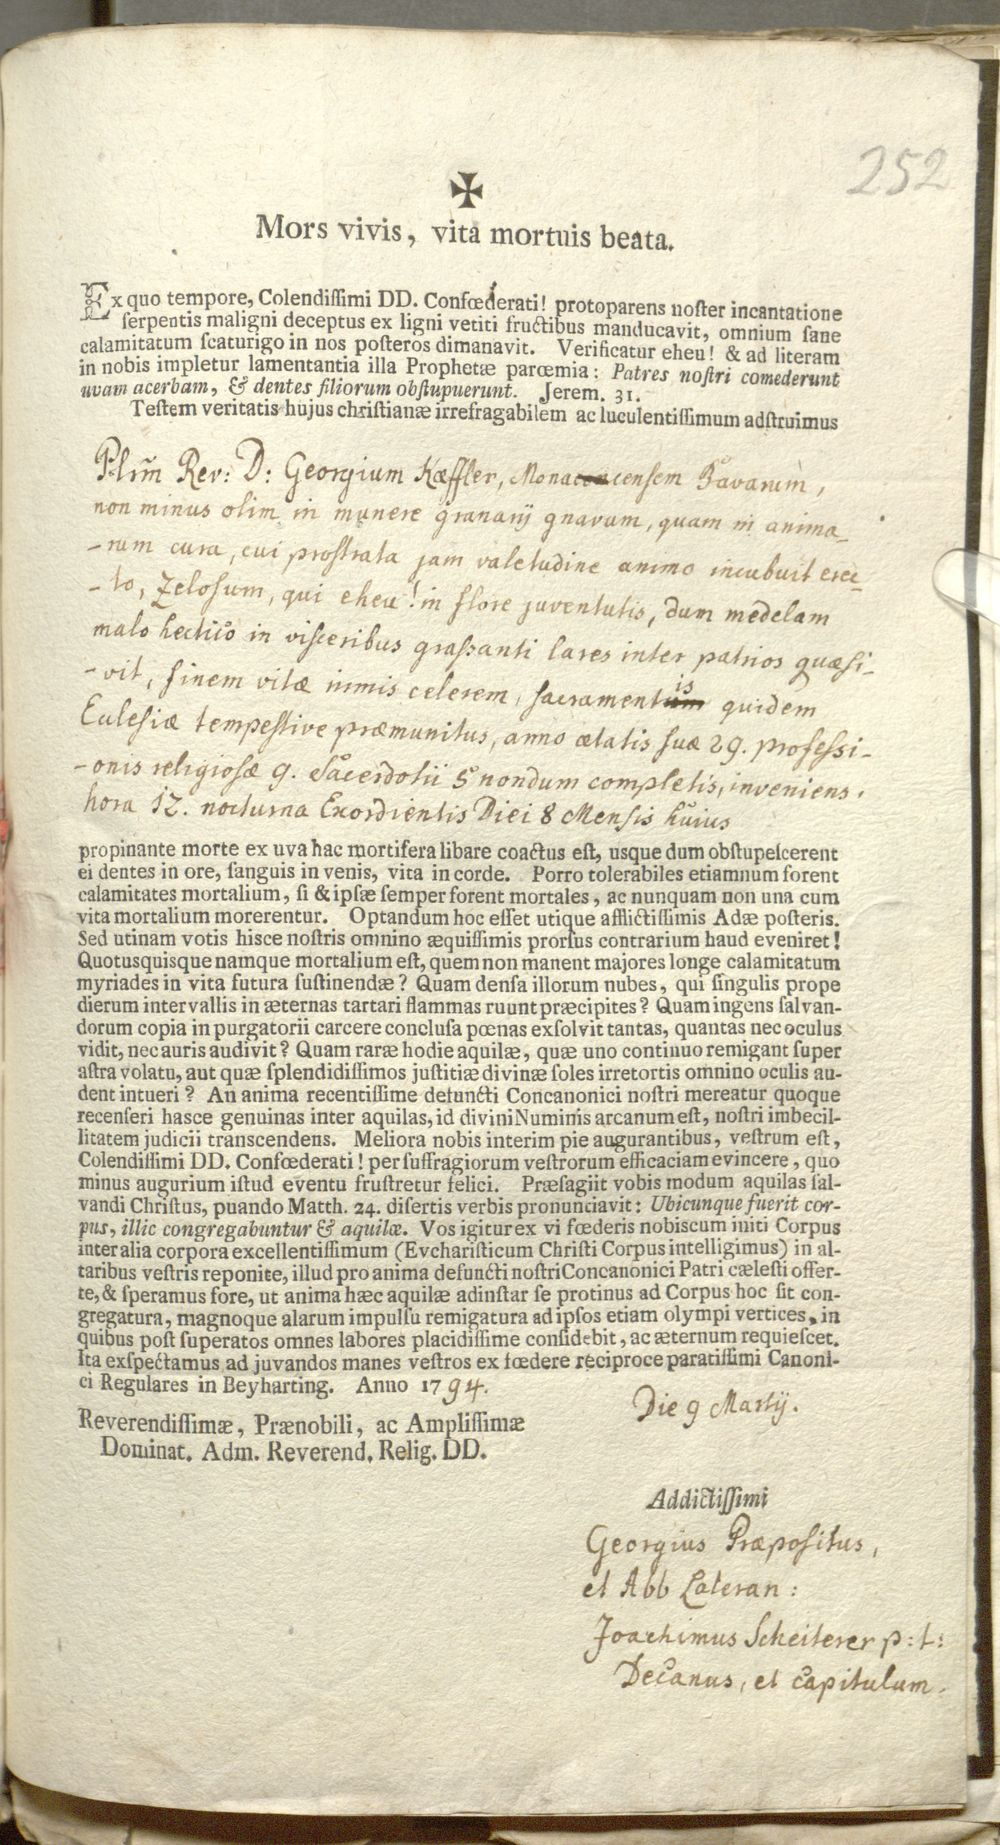 252
✠
Mors vivis, vita mortuis beata.
Ex quo tempore, Colendiſſimi DD. Confœderati! protoparens noſter incantatione
ſerpentis maligni deceptus ex ligni vetiti fructibus manducavit, omnium ſane
calamitatum ſcaturigo in nos poſteros dimanavit. Verificatur eheu! & ad literam
in nobis impletur lamentantia illa Prophetæ parœmia: Patres noſtri comederunt
uvam acerbam, & dentes filiorum obſtupuerunt. Jerem. 31.
Teſtem veritatis hujus chriſtianæ irrefragabilem ac luculentiſſimum adſtruimus
Plrm̃ Rev: D: Georgium Kæffler, Monacencenſem Bavarum,
non minus olim in munere granarij gnavum, quam in anima-
-rum cura, cui proſtrata jam valetudine animo incubuit erec-
-to, Zeloſum, qui eheu! in flore juventutis, dum medelam
malo hectico in viſceribus graſsanti lares inter patrios quæſi-
-vit, finem vitæ nimis celerem, ſacramentis quidem
Eccleſiæ tempeſtive præmunitus, anno ætatis ſuæ 29. profeſsi-
-onis religioſæ 9. Sacerdotii 5 nondum completis, inveniens.
hora 12. nocturna Exordientis Diei 8 Menſis huius
propinante morte ex uva hac mortifera libare coactus eſt, usque dum obſtupeſcerent
ei dentes in ore, ſanguis in venis, vita in corde. Porro tolerabiles etiamnum forent
calamitates mortalium, ſi & ipſæ ſemper forent mortales, ac nunquam non una cum
vita mortalium morerentur. Optandum hoc eſſet utique afflictiſſimis Adæ poſteris.
Sed utinam votis hisce noſtris omnino æquiſſimis prorſus contrarium haud eveniret!
Quotusquisque namque mortalium eſt, quem non manent majores longe calamitatum
myriades in vita futura ſuſtinendæ? Quam denſa illorum nubes, qui ſingulis prope
dierum intervallis in æternas tartari flammas ruunt præcipites? Quam ingens ſalvan-
dorum copia in purgatorii carcere concluſa pœnas exſolvit tantas, quantas nec oculus
vidit, nec auris audivit? Quam raræ hodie aquilæ, quæ uno continuo remigant ſuper
aſtra volatu, aut quæ ſplendidiſſimos juſtitiæ divinæ ſoles irretortis omnino oculis au-
dent intueri? An anima recentiſſime defuncti Concanonici noſtri mereatur quoque
recenſeri hasce genuinas inter aquilas, id divini Numinis arcanum eſt, noſtri imbecil-
litatem judicii transcendens. Meliora nobis interim pie augurantibus, veſtrum eſt,
Colendiſſimi DD. Confœderati! per ſuffragiorum veſtrorum efficaciam evincere, quo
minus augurium iſtud eventu fruſtretur felici. Præſagiit vobis modum aquilas ſal-
vandi Chriſtus, puando Matth. 24. diſertis verbis pronunciavit: Ubicunque fuerit cor-
pus, illic congregabuntur & aquilæ. Vos igitur ex vi fœderis nobiscum initi Corpus
inter alia corpora excellentiſſimum (Evchariſticum Chriſti Corpus intelligimus) in al-
taribus veſtris reponite, illud pro anima defuncti noſtri Concanonici Patri cæleſti offer-
te, & ſperamus fore, ut anima hæc aquilæ adinſtar ſe protinus ad Corpus hoc ſit con-
gregatura, magnoque alarum impulſu remigatura ad ipſos etiam olympi vertices, in
quibus poſt ſuperatos omnes labores placidiſſime conſidebit, ac æternum requieſcet.
Ita exſpectamus ad juvandos manes veſtros ex fœdere reciproce paratiſſimi Canoni-
ci Regulares in Beyharting. Anno 1794.
Die 9 Martij.
Reverendiſſimæ, Prænobili, ac Ampliſſimæ
Dominat. Adm. Reverend. Relig. DD.
Addictiſſimi
Georgius Præpoſitus,
et Abb Lateran:
Joachimus Scheiterer p:t:
Decanus, et capitulum.